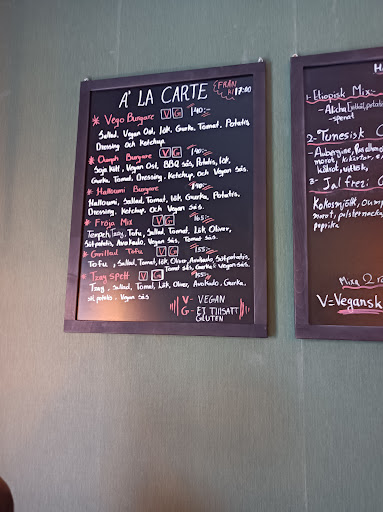 A' LA CARTE
FRÅN
Kl 17:00
Vego Burgare V G 140:-
Sallad, Vegan Ost, lök, Gurka, Tomat, Potatis,
Dressing och Ketchup.
Oumph Burgare V G 140:-
Soja kött, Vegan Ost, BBQ sås, Potatis, lök,
Gurka, Tomat, Dressing, Ketchup, och Vegan Sås.
Halloumi Burgare 140:-
Halloumi, Sallad, Tomat, lök, Gurka, Potatis,
Dressing, Ketchup, och Vegan Sås.
Fröja Mix V G 165:-
Tempeh, Tzay, Tofu, Sallad, Tomat, Lök, Oliver,
Sötpotatis, Avokado, Vegan Sås, Tomat sås.
Grillad Tofu V G 155:-
Tofu, Sallad, Tomat, lök, Oliver, Avokado, Sötpotatis
Tomat sås, Gurka, Vegan Sås.
Tzay Spett V G 155:-
Tzay, Sallad, Tomat, Lök, Oliver, Avokado, Gurka,
söt potatis, Vegan Sås
V - VEGAN
G - EJ TILLSATT
GLUTEN
1- Etiopisk Mix:-
- Alicha
- spenat
2- Tunesisk
Aubergine,
morot, kikärtor,
vitlök,
3- Jalfrezi
Kokosmjölk, Oumph
morot, palsternacka
paprika
Mixa 2
V=Vegansk